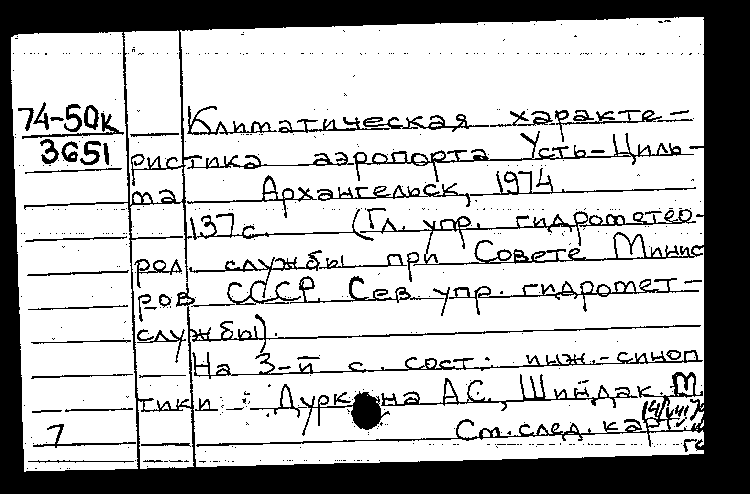 74-50к Климатическая характе-
3651 ристика аэропорта Усть-Циль-
ма Архангельск, 1974.
137 с. (Гл. упр. гидрометео-
рол. службы при Совете Минис
ров СССР. Сев упр. гидромет-
службы).
На 3-й с. сост.: инж.-синоп
тики: А.С., Шиндак М.
7 См. след. карт